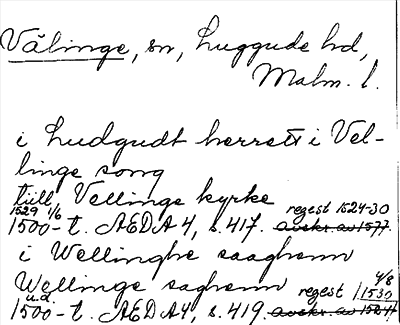 Välinge, sn, Luggude hd,
Malm. l.
i Ludgudt herrett i Vel-
linge song
tiill Vellinge kyrke
1529 1/6 regest 1524-30
1500-t. ÆDA 4, s. 417. avskr. av 1577.
i Wellinghe saaghenn
Wellinge saghenn regest 4/8 1530
u.d.
1500-t. ÆDA 4, s. 419. avskr. av